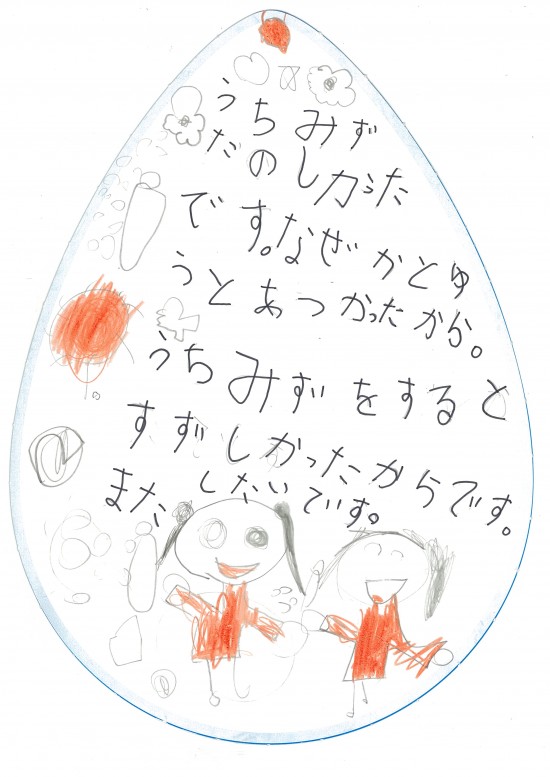 うちみず
たのしかった
です。なぜかとゆ
うとあつかったから。
うちみずをすると
すずしかったからです。
またしたいです。